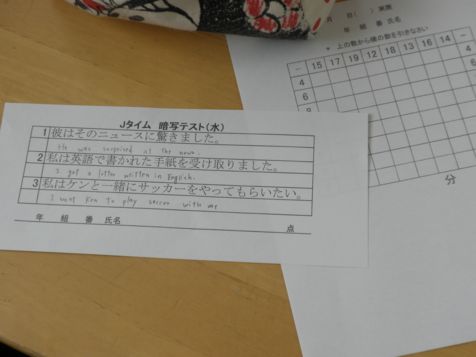 Jタイム 暗写テスト(水)
1 彼はそのニュースに驚きました。
He was surprised at the news.
2 私は英語で書かれた手紙を受け取りました。
I got a letter written in English.
3 私はケンと一緒にサッカーをやってもらいたい。
I want Ken to play soccer with me
年 組 番 氏名 点
月 日( ) 実施
年 組 番 氏名
* 上の数から横の数を引きなさい
- 15 17 19 12 18 13 16 14 -
4 4
6 6
分